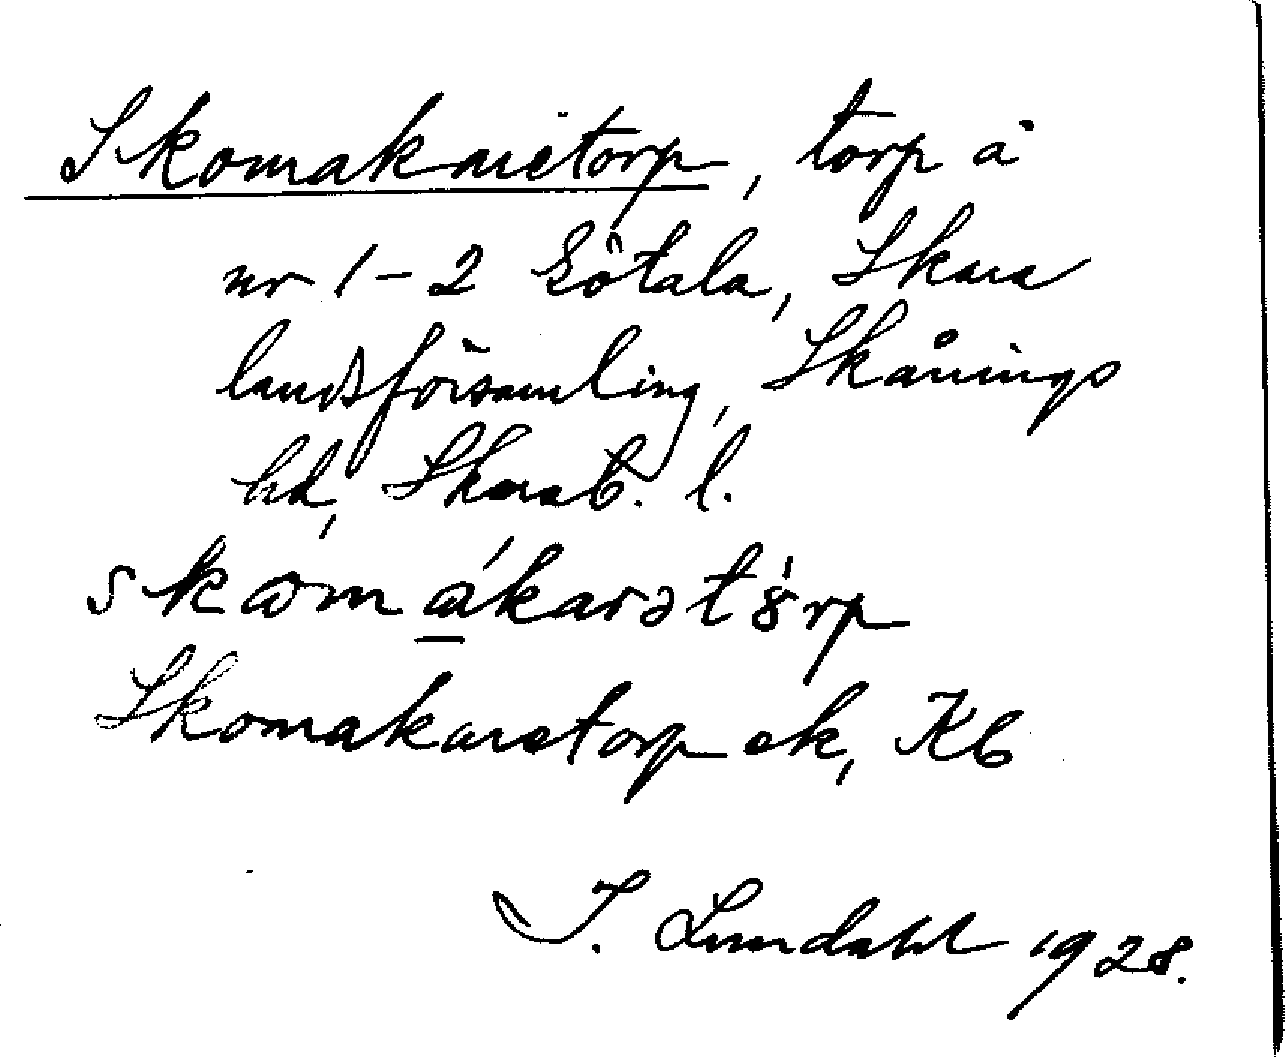 Skomakaretorp, torp å
nr 1-2 Götala, Skara
landsförsamling, Skånings
hd, Skarab. l.
skωmákarət
Skomakaretorp ek, Kb
I. Lundahl 1928.